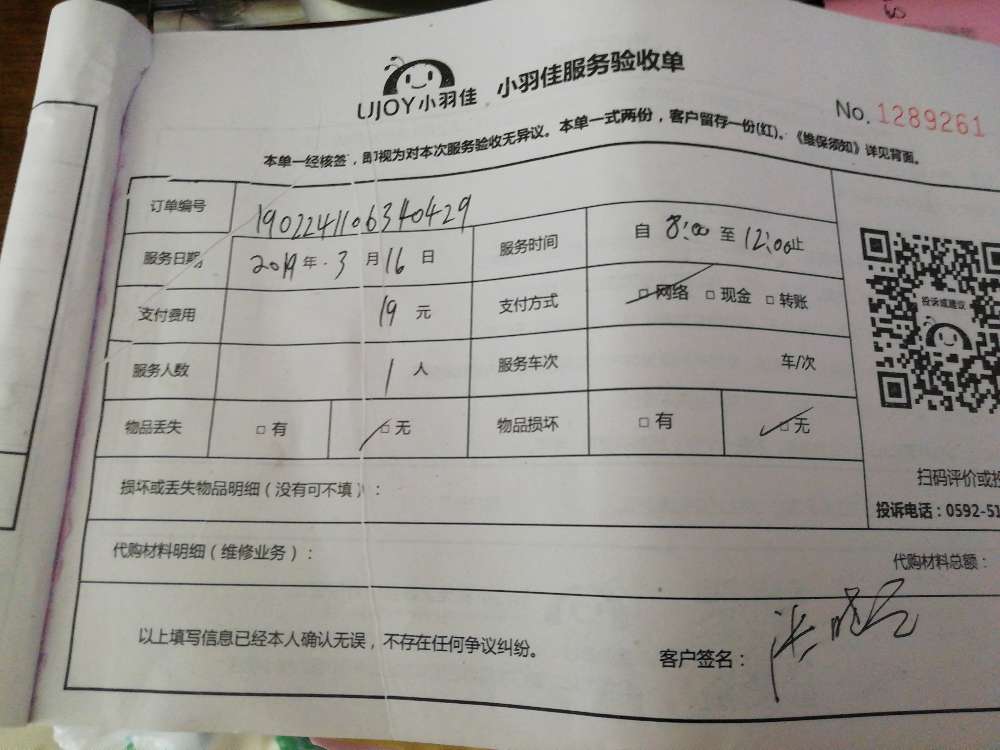 UJOY小羽佳 小羽佳服务验收单
No. 1289261
本单一经核签，即视为对本次服务验收无异议。本单一式两份，客户留存一份(红)。《维保须知》详见背面。
订单编号 190224110634​0429
服务日期 2019年·3月16日 服务时间 自 8:00 至 12:00止
支付费用 19 元 支付方式 □网络 □现金 □转账
服务人数 1 人 服务车次 车/次
物品丢失 □有 □无 物品损坏 □有 □无
投诉或建议
扫码评价或投
损坏或丢失物品明细（没有可不填）：
投诉电话：0592-51
代购材料明细（维修业务）：
代购材料总额：
以上填写信息已经本人确认无误，不存在任何争议纠纷。
客户签名：